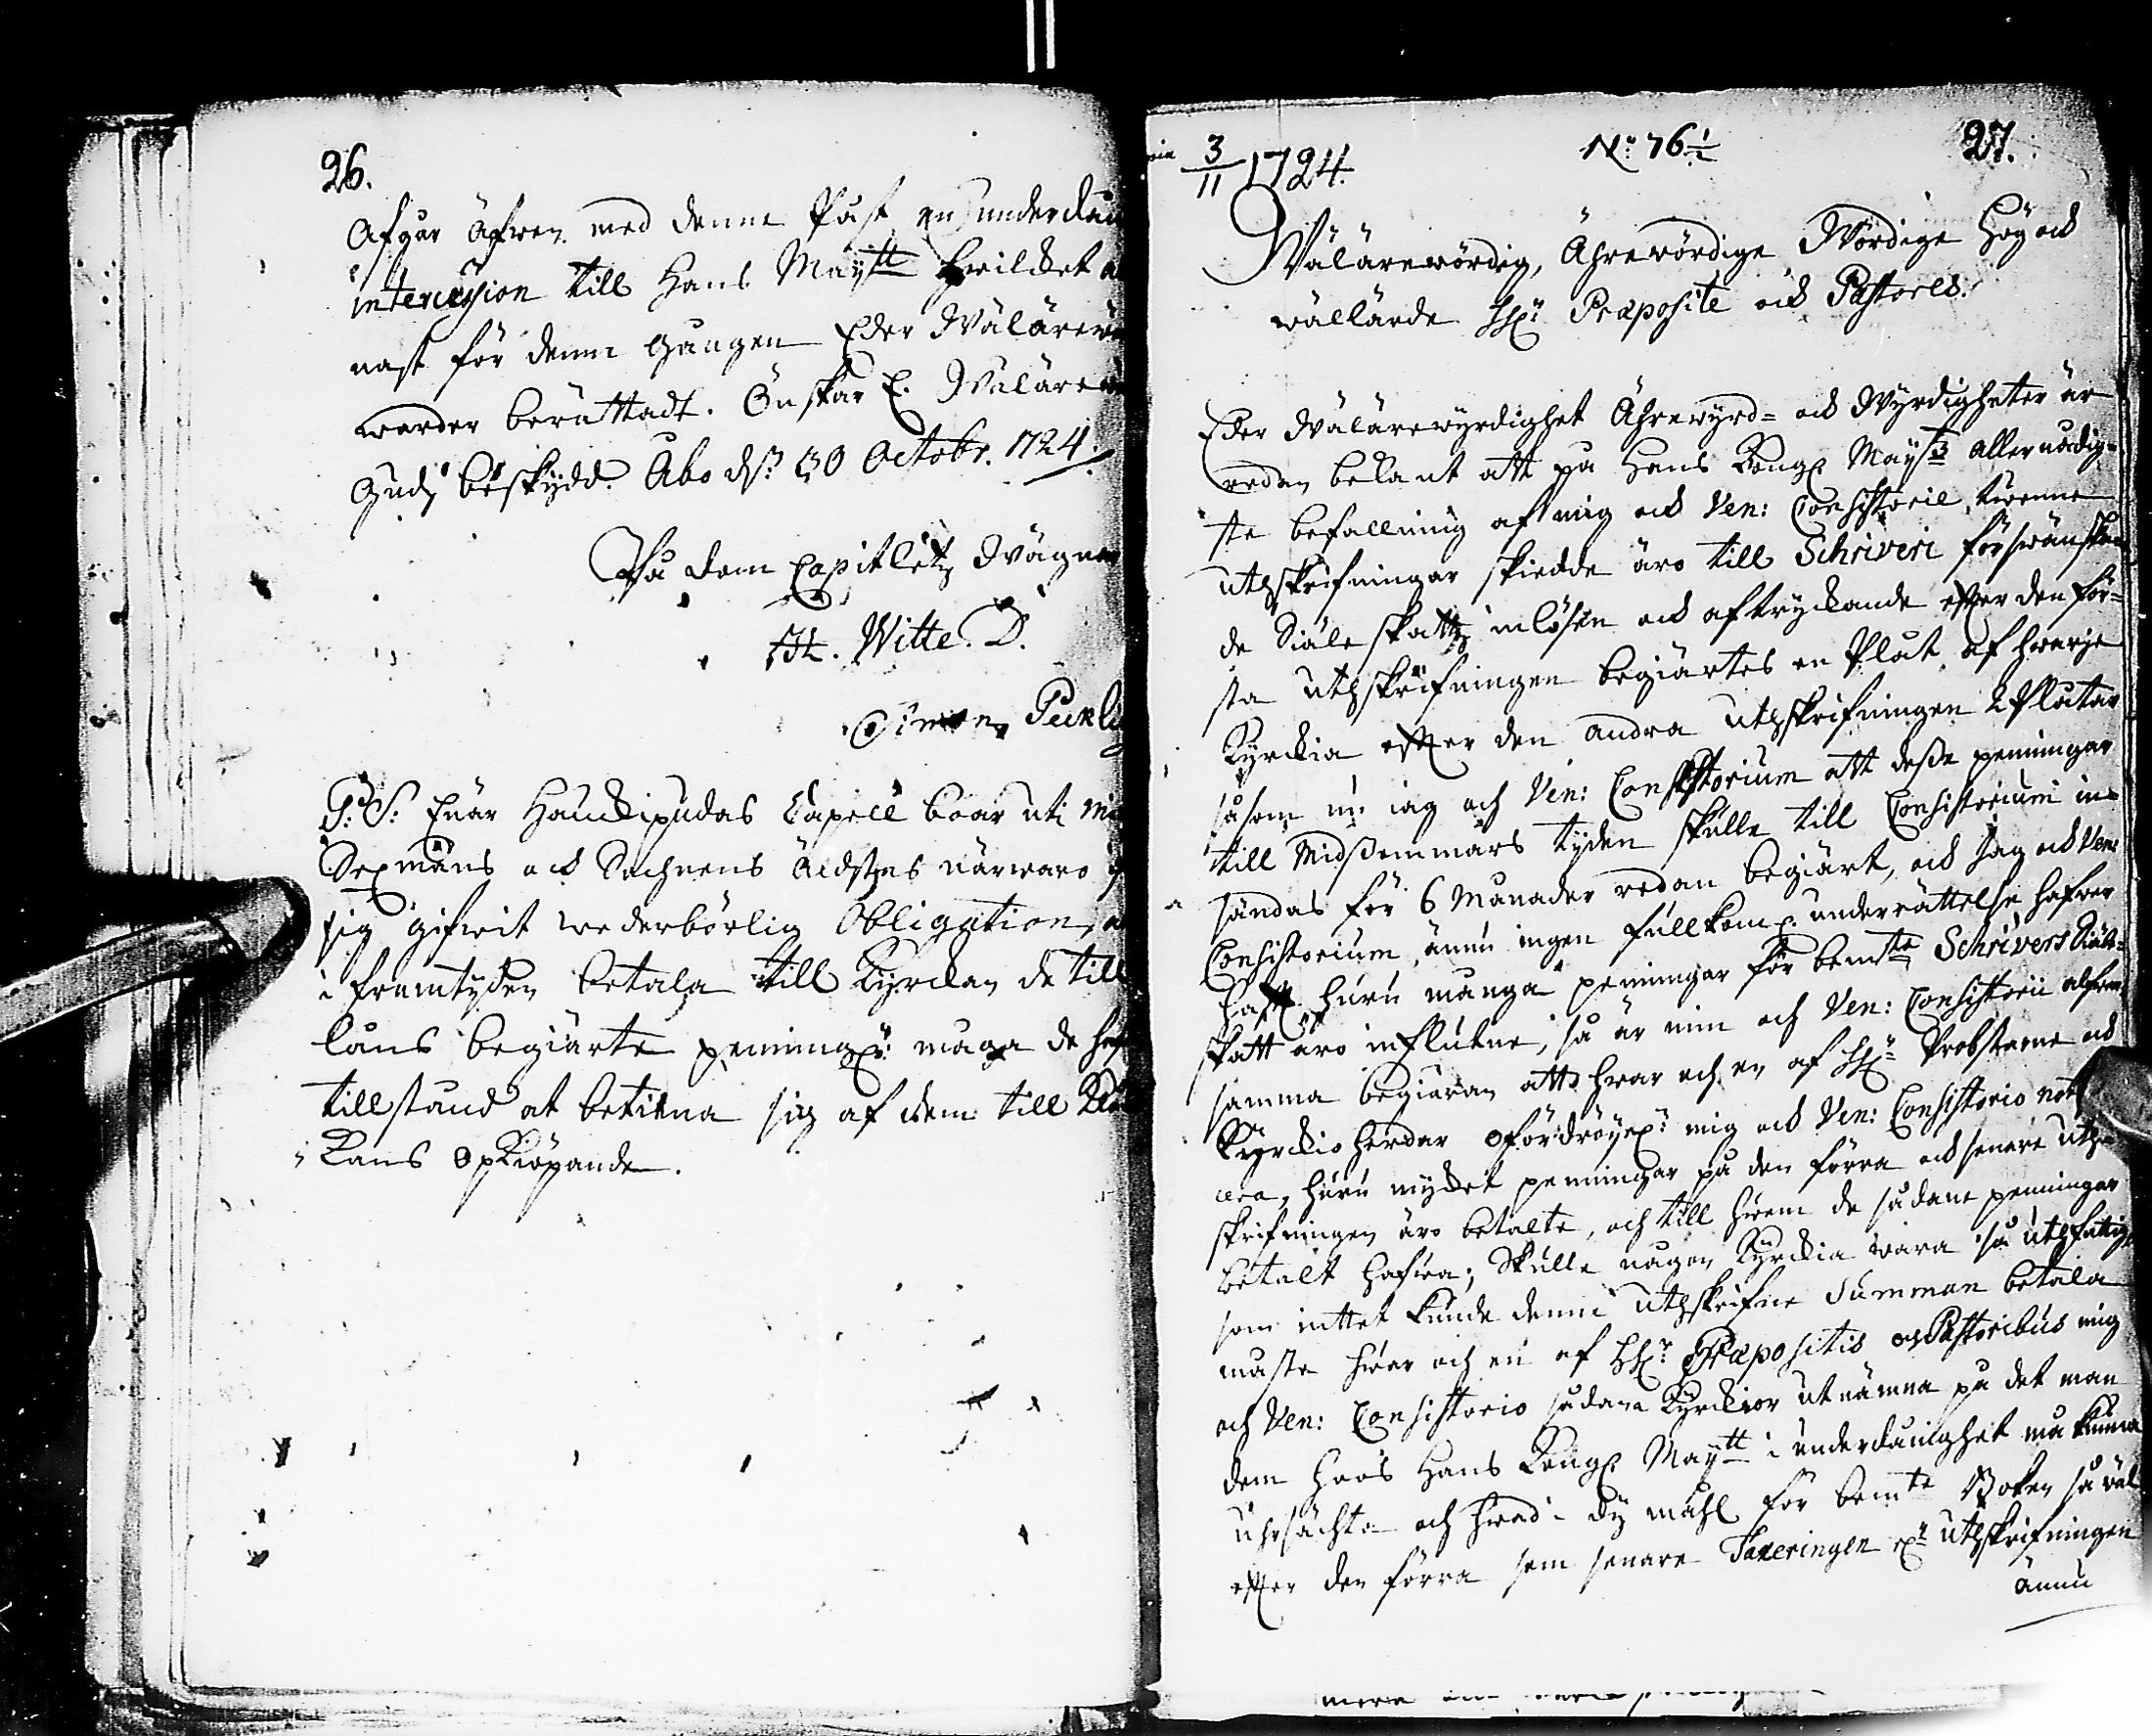 26.
Afgår äfwen med denne Påst en underdån
intercession till Hans Maÿtt hwilcket
nast för denne gången Eder Wälärew
warder berättadt. Önskar E. Wälärew
Gudz beskydd. Åbo dß 30 Octobr. 1724.
På dem Capitletz Wägnar
H. Witte. D.
Simon
P. S. Enär Hauckipudas Capell boar uti
Sexmäns och Sochnens Äldstes närwaro
sig gifwit wederbörlig Obligation,
i framtyden betala till Kyrckan de till
låns begiärte penningr: måga de haf
tillstånd at betiena sig af dem till
kans opkiöpande.
3/11 1724.
No: 76 1/2
27.
Wälärewördig, Ährewördige Wördige Hög och
wällärde HHr: Præposite och Pastores.
Eder Wälärewyrdighet Ährewyrd- och Wyrdigheter är
redan bekant att på Hans Kongl Maÿtz allernådig-
ste befallning af mig och Ven: Consistorie twenne
uthskrifningar skiedde äro till Schriveri förswänska
de Siäleskattz inlösen och aftryckande efter den för-
sta uthskrifningen begiärtes en Plåt af hwarje
Kyrckia efter den andra uthskrifningen 2 Plåtar
såsom nu iag och Ven: Consistorium att deße penningar
till Midßommars tyden skulle till Consistorium in-
sändas för 6 Månader redan begiärt, och Jag och Ven:
Consistorium, ännu ingen fullkoml. underrättelse hafwer
haft huru många penningar för bemte Schrivers Siäle-
skatt äro influtne, så är min och Ven: Consistorii alfwar
samma begiäran att hwar och en af HHr: Probstarne och
Kyrckioherdar ofördröyel: mig och Ven: Consistorio
cera, huru mycket penningar på den förra och senare uth-
skrifningen äro betalte, och till hwem de sådane penningar
betalt hafwa; Skulle någon Kyrckia wara så uthfattig
som inttet kunde denne uthskrifne Summan betala
måste hwar och en af HHr: Præpositis och Pastoribus mig
och Ven: Consistorio sådana Kyrckior utnämna på det man
dem hoos Hans Kongl Maÿtt i underdånighet må kunna
uhrsächta och hwad i dy måhl för bemte Boken så wäl
efter den förra som senare Taxeringen uthskrifningen
ännu